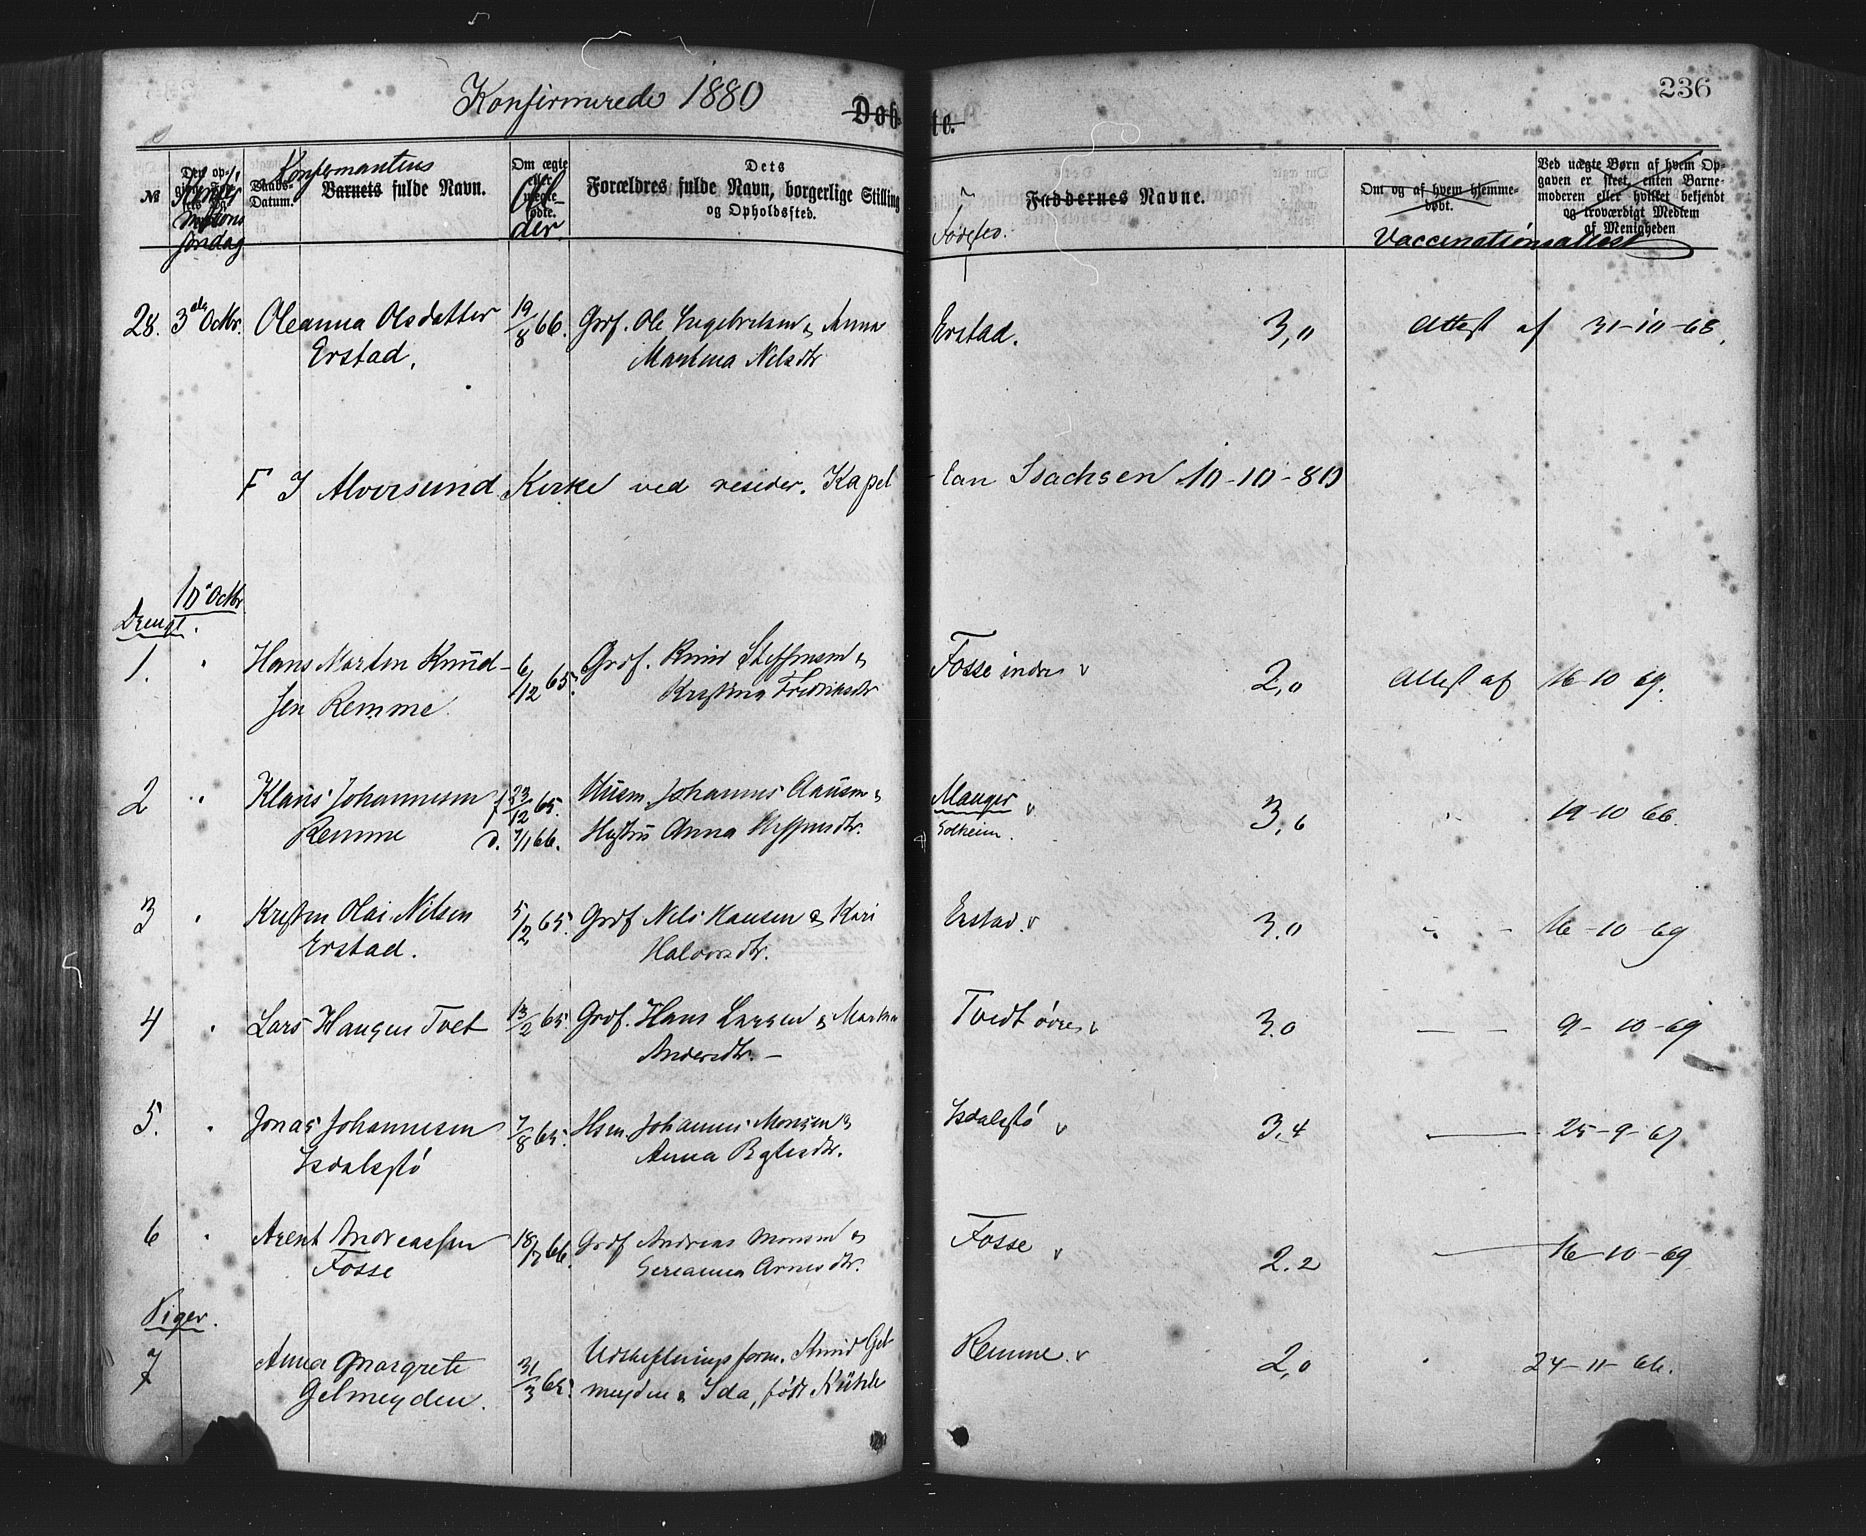 Konfirmerede 1880
Døbte.
236
№
Konfirmations søndag
Daabs-Datum.
Konfirmantens
Barnets fulde Navn.
Om ægte eller uægte fødte.
Alder.
Dets
Forældres fulde Navn, borgerlige Stilling
og Opholdssted.
Faddernes Navne.
Fødested.
Om og af hvem hjemmedøbt.
Ved uægte Børn af hvem Opgaven er skeet, enten Barnemoderen eller hvilket bekjendt og troværdigt Medlem af Menigheden
Vaccinationsattest
28. 3die Octbr. Oleanna Olsdatter 19/8 66. Grdf. Ole Engebretsen & Anna Erstad. 3,0 Attest af 31-10-68.
Erstad. Martina Nilsdtr
F I Alversund Kirke ved resider. Kapellan Isachsen 10-10-80
10 Octbr
Drenge.
1. " Hans Morten Knud- 6/12 65. Grdf. Knud Steffensen & Fosse indre v 2,0 Attest af 16-10 69.
sen Remme. Kristina Fredriksdtr
2 " Klaus Johannesen f 23/12 65. Husm. Johannes Clausen & Manger v 3,6 " 19-10 66.
Remme d. 7/1 66. Hustru Anna Steffensdtr. Solheim.
3 " Kristen Olai Nilsen 5/2 65. Grdf Nils Hansen & Kari Erstad. v 3.0 " - 16-10-69
Erstad. Halvorsdtr.
4 " Lars Hansen Tvet 13/2 65 Grdf. Hans Larsen & Marta Tvedt øvre v 3.0 — — 9-10-69
Andersdtr. —
5. " Jonas Johannesen 7/8 65. Hsm. Johannes Monsen & Isdalstø v 3,4 — 25-9-67
Isdalstø Anna
6 " Arent Andreassen 18/7 66. Grdf Andreas Monsen & Fosse v 2.2 — 16-10-69.
Fosse Sereanna Arnesdtr.
Piger.
7 Anna Margrete 31/3 65. Udskiftningsform. Knud Gel- Remme. v 2,0 " 24-11-66.
Gelmeyden. meyden & Ida, født